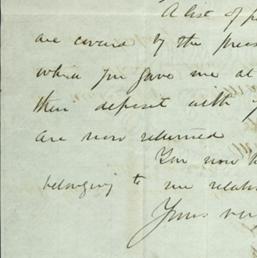 A list of
are covered by the
which you gave me at
their deposit with
are now returned
You now
belonging to me
Yours